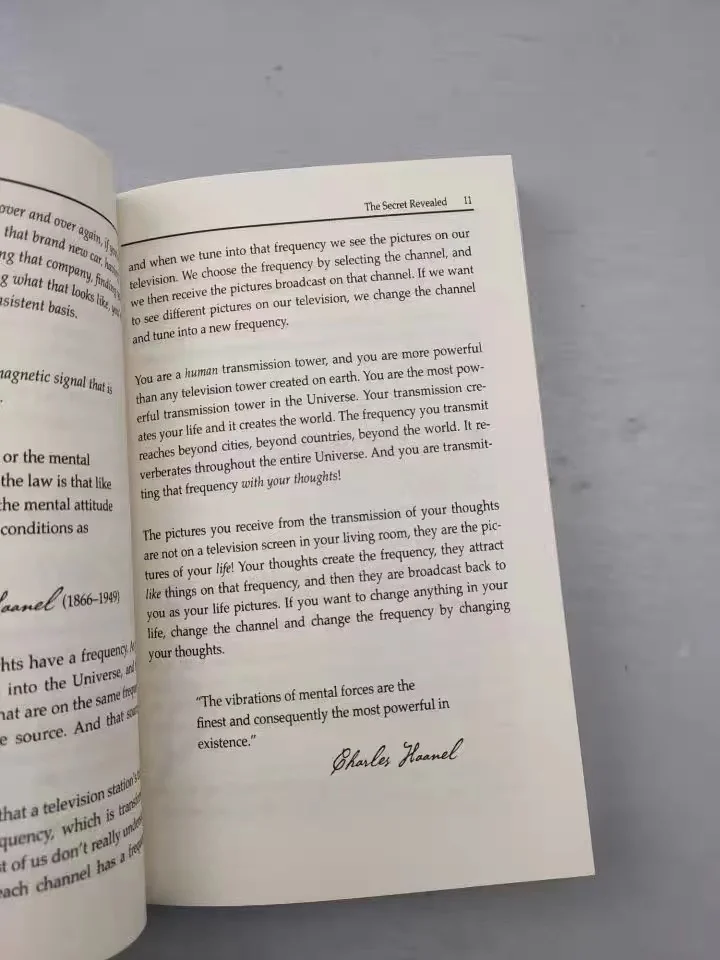 over and over again, if
that brand new car,
ng that company, finding
g what that looks like,
nsistent basis.
magnetic signal that is
.
or the mental
the law is that like
the mental attitude
conditions as
Haanel (1866–1949)
hts have a frequency.
into the Universe, and
hat are on the same
e source. And that
that a television station's
quency, which is
st of us don't really
each channel has a
The Secret Revealed 11
and when we tune into that frequency we see the pictures on our
television. We choose the frequency by selecting the channel, and
we then receive the pictures broadcast on that channel. If we want
to see different pictures on our television, we change the channel
and tune into a new frequency.
You are a human transmission tower, and you are more powerful
than any television tower created on earth. You are the most pow-
erful transmission tower in the Universe. Your transmission cre-
ates your life and it creates the world. The frequency you transmit
reaches beyond cities, beyond countries, beyond the world. It re-
verberates throughout the entire Universe. And you are transmit-
ting that frequency with your thoughts!
The pictures you receive from the transmission of your thoughts
are not on a television screen in your living room, they are the pic-
tures of your life! Your thoughts create the frequency, they attract
like things on that frequency, and then they are broadcast back to
you as your life pictures. If you want to change anything in your
life, change the channel and change the frequency by changing
your thoughts.
“The vibrations of mental forces are the
finest and consequently the most powerful in
existence.”
Charles Haanel